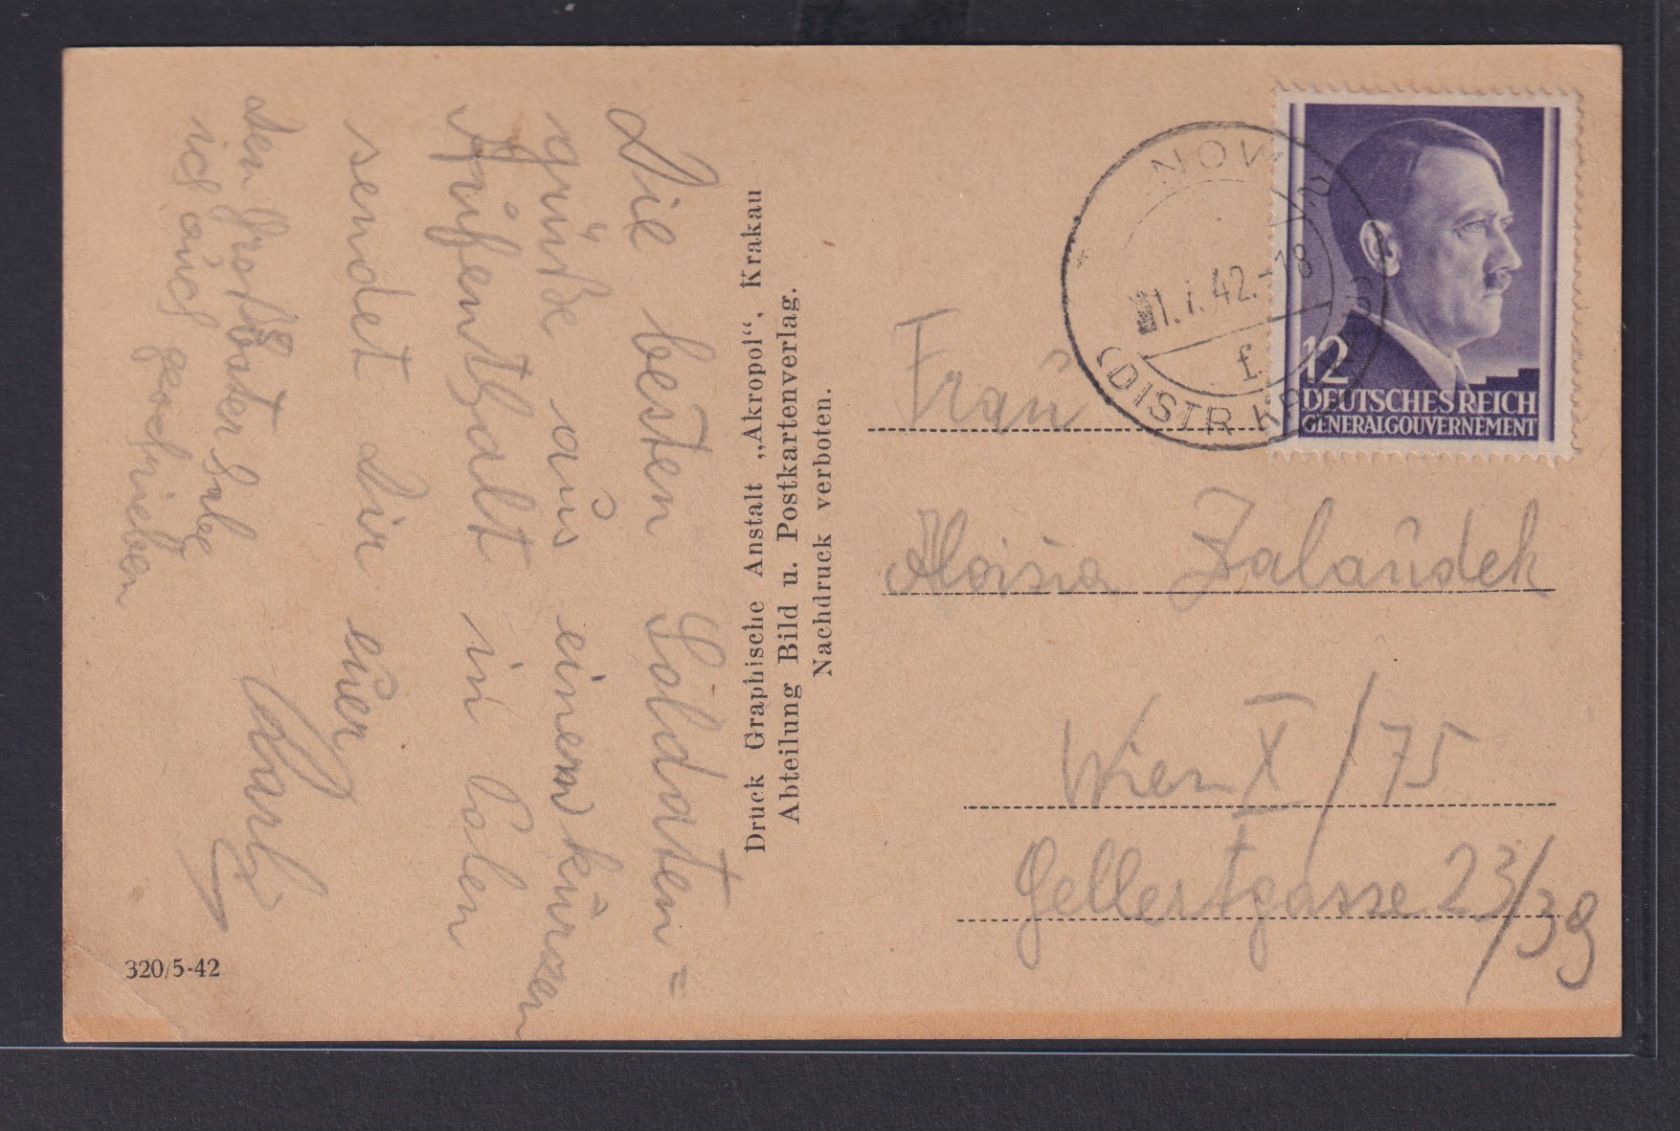 Die besten Soldaten=
grüße aus einem kurzen
Aufenthalt in Polen
sendet Dir euer
Karli
den Großvater habe
ich auch geschrieben
320/5-42
Druck Graphische Anstalt „Akropol“, Krakau
Abteilung Bild u. Postkartenverlag.
Nachdruck verboten.
NOWY
1.7.42.-18
f
(DISTR. KRAKAU)
12
DEUTSCHES REICH
GENERALGOUVERNEMENT
Frau
Aloisia Zalaudek
Wien X/75
Gellertgasse 23/39